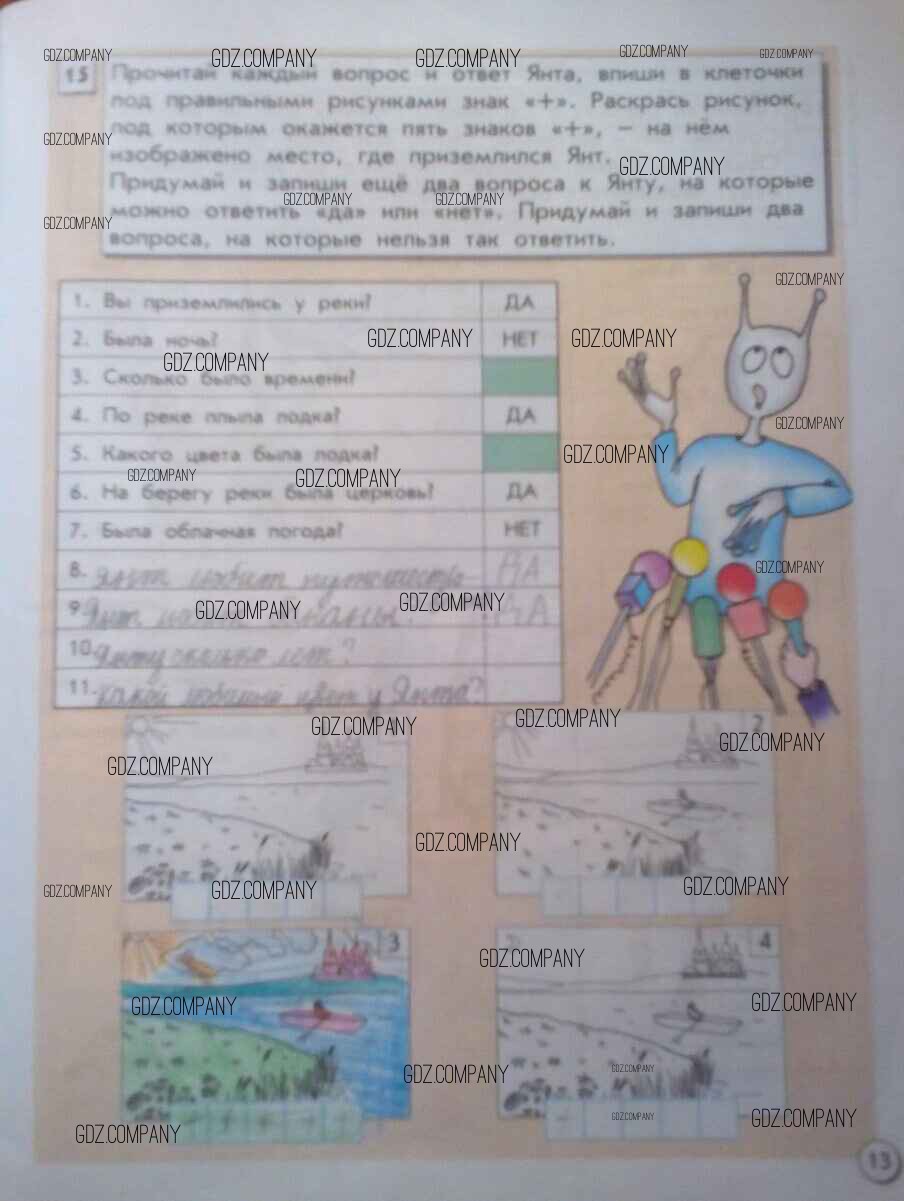 15
Прочитай каждый вопрос и ответ Янта, впиши в клеточки
под правильными рисунками знак «+». Раскрась рисунок,
под которым окажется пять знаков «+», – на нём
изображено место, где приземлился Янт.
Придумай и запиши ещё два вопроса к Янту, на которые
можно ответить «да» или «нет». Придумай и запиши два
вопроса, на которые нельзя так ответить.
1. Вы приземлились у реки? ДА
2. Была ночь? НЕТ
3. Сколько было времени?
4. По реке плыла лодка? ДА
5. Какого цвета была лодка?
6. На берегу реки была церковь? ДА
7. Была облачная погода? НЕТ
8. Янт любит ДА
9 Янт ДА
10. Янту сколько лет?
11. какой любимый цвет у Янта?
2
3
4
13
GDZ.COMPANY